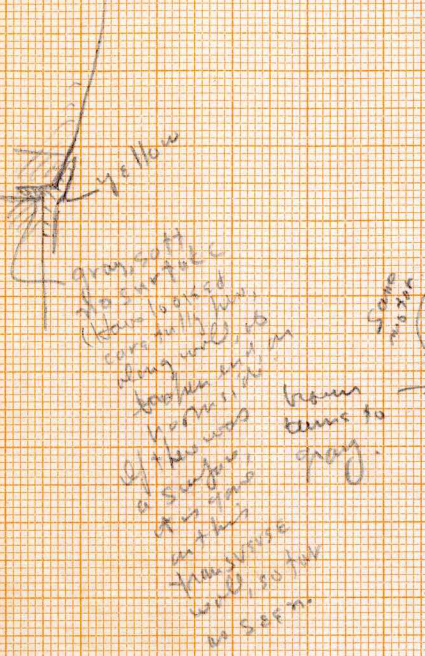 yellow
gray, soft
No surface
(Have looked
carefully here,
along wall, to
broken end, on
north side.
If there was
a surface,
it is gone
on this
transverse
wall, so far
as seen.
Same
motor
brown
turns to
gray.